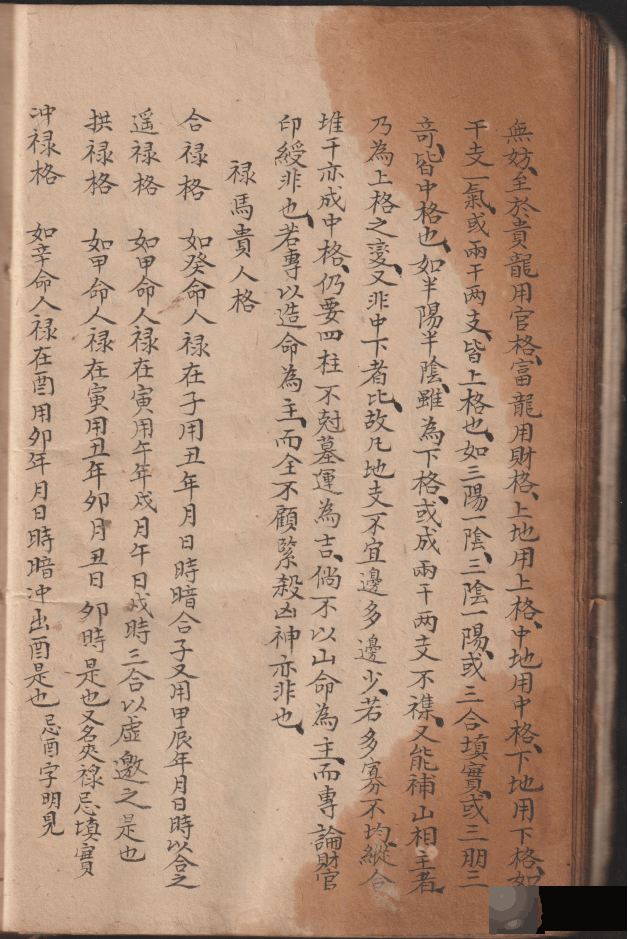 無妨、至於貴龍用官格、富龍用財格、上地用上格、中地用中格、下地用下格、如
干支一氣、或兩干两支、皆上格也、如三陽一陰、三陰一陽、或三合填實、或三朋三
竒、皆中格也、如半陽半陰、雖為下格、或成兩干两支不襍、又能補山相主者、
乃為上格之变、又非中下者比、故凡地支不宜邊多邊少、若多寡不均、縱合
堆干亦成中格、仍要四柱不尅墓運為吉、倘不以山命為主、而專論財官
印綬非也、若專以造命為主、而全不顧緊殺凶神亦非也、
禄馬貴人格
合禄格 如癸命人禄在子用丑年月日時暗合子又用甲辰年月日時以合之
遥禄格 如甲命人禄在寅用午年戌月午日戌時三合以虛邀之是也
拱禄格 如甲命人禄在寅用丑年卯月丑日卯時是也又名夾禄忌填實
冲禄格 如辛命人禄在酉用卯年月日時暗冲出酉是也忌酉字明見